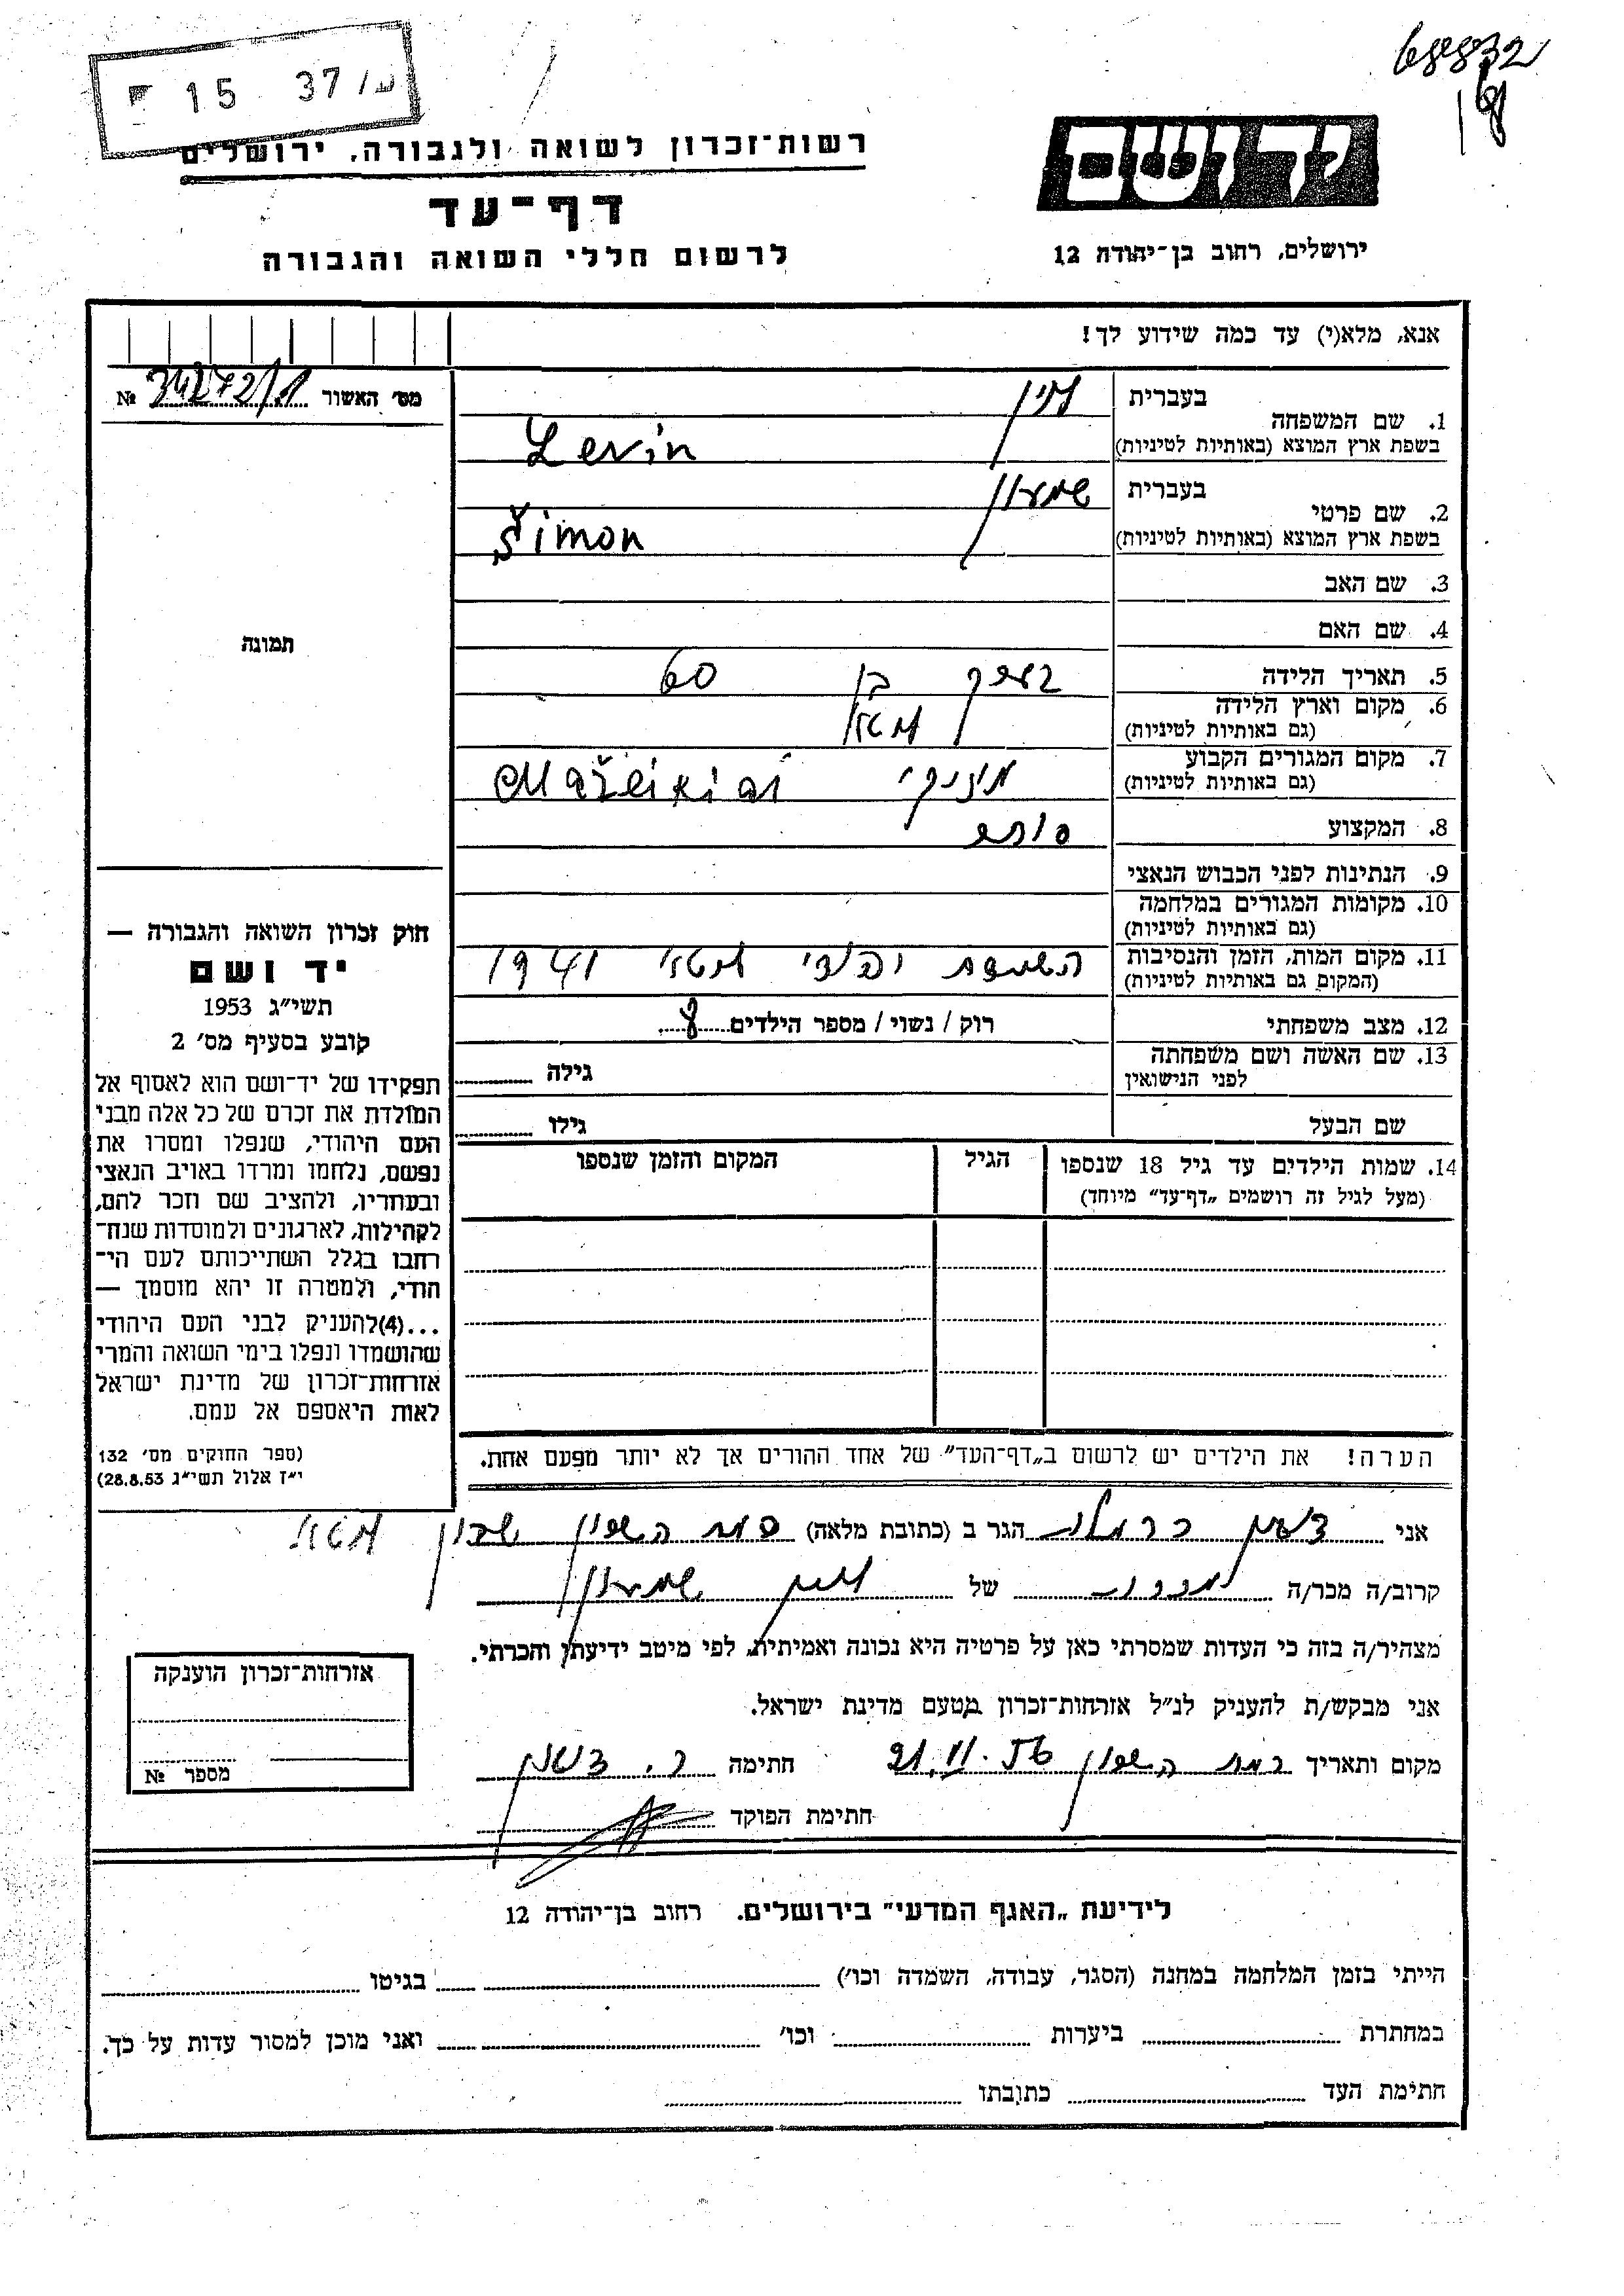 68832
15 37/
רשות־זכרון לשואה ולגבורה, ירושלים
יד ושם
דף־עד
לרשום חללי השואה והגבורה
ירושלים, רחוב בן־יהודה 12
אנא, מלא(י) עד כמה שידוע לך!
מס׳ האשור № 34272/1
תמונה
1. שם המשפחה
בעברית לוין
בשפת ארץ המוצא (באותיות לטיניות) Levin
2. שם פרטי
בעברית שמעון
בשפת ארץ המוצא (באותיות לטיניות) Šimon
3. שם האב
4. שם האם
5. תאריך הלידה בערך בן 60
6. מקום וארץ הלידה ליטא
(גם באותיות לטיניות)
7. מקום המגורים הקבוע Mažeikiai
(גם באותיות לטיניות)
8. המקצוע סוחר
9. הנתינות לפני הכבוש הנאצי
10. מקומות המגורים במלחמה
(גם באותיות לטיניות)
11. מקום המות, הזמן והנסיבות השמדת יהודי ליטא 1941
(המקום גם באותיות לטיניות)
12. מצב משפחתי רוק / נשוי / מספר הילדים 8
13. שם האשה ושם משפחתה
לפני הנישואין
גילה
שם הבעל
גילו
14. שמות הילדים עד גיל 18 שנספו
(מעל לגיל זה רושמים „דף־עד" מיוחד)
הגיל
המקום והזמן שנספו
הערה! את הילדים יש לרשום ב„דף־העד" של אחד ההורים אך לא יותר מפעם אחת.
חוק זכרון השואה והגבורה —
יד ושם
תשי״ג 1953
קובע בסעיף מס׳ 2
תפקידו של יד־ושם הוא לאסוף אל
המולדת את זכרם של כל אלה מבני
העם היהודי, שנפלו ומסרו את
נפשם, נלחמו ומרדו באויב הנאצי
ובעוזריו, ולהציב שם וזכר להם,
לקהילות, לארגונים ולמוסדות שנח־
רבו בגלל השתייכותם לעם הי־
הודי, ולמטרה זו יהא מוסמך —
...(4)להעניק לבני העם היהודי
שהושמדו ונפלו בימי השואה והמרי
אזרחות־זכרון של מדינת ישראל
לאות היאספם אל עמם.
(ספר החוקים מס׳ 132
י״ז אלול תשי״ג 28.8.53)
אני הגר ב (כתובת מלאה) רמת השרון שכון ליטא
קרוב/ה מכר/ה של לוין שמעון
מצהיר/ה בזה כי העדות שמסרתי כאן על פרטיה היא נכונה ואמיתית, לפי מיטב ידיעתי והכרתי.
אני מבקש/ת להעניק לנ״ל אזרחות־זכרון מטעם מדינת ישראל.
מקום ותאריך רמת השרון 21.VI.56 חתימה
חתימת הפוקד
אזרחות־זכרון הוענקה
מספר №
לידיעת „האגף המדעי" בירושלים. רחוב בן־יהודה 12
הייתי בזמן המלחמה במחנה (הסגר, עבודה, השמדה וכו׳) בגיטו
במחתרת ביערות וכו׳ ואני מוכן למסור עדות על כך.
חתימת העד כתובתו